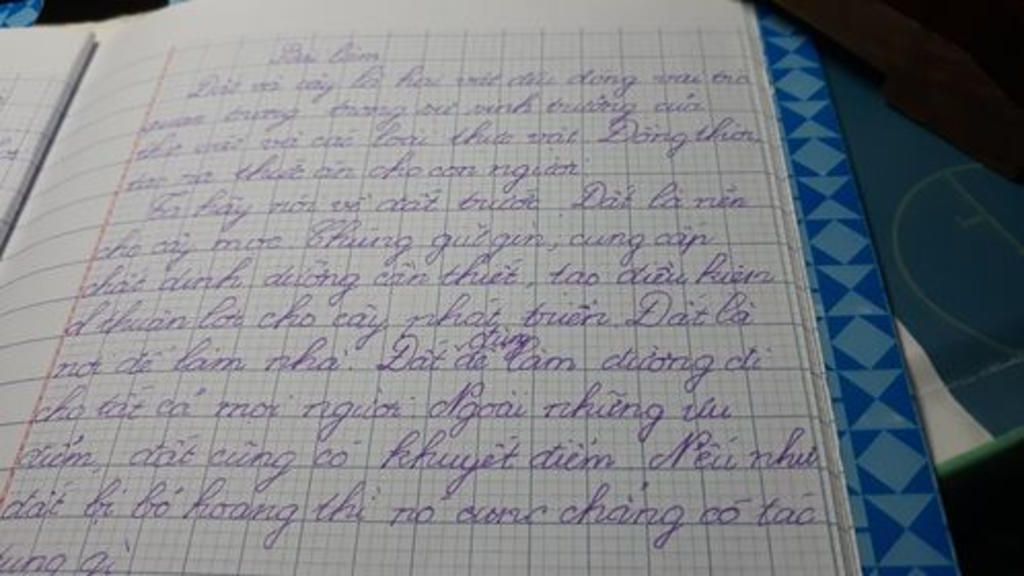 Bài làm
Đất và cây là hai vật đều đóng vai trò
quan trọng trong sự sinh trưởng của
và các loài thực vật. Đồng thời
tạo ra thức ăn cho con người.
Ta hãy nói về đất trước. Đất là nền
cho cây mọc. Chúng giữ gìn, cung cấp
chất dinh dưỡng cần thiết, tạo điều kiện
thuận lợi cho cây phát triển. Đất là
nơi để làm nhà. Đất dùng để làm đường đi
cho tất cả mọi người. Ngoài những ưu
điểm, đất cũng có khuyết điểm. Nếu như
đất bị bỏ hoang thì nó cũng chẳng có tác
dụng gì